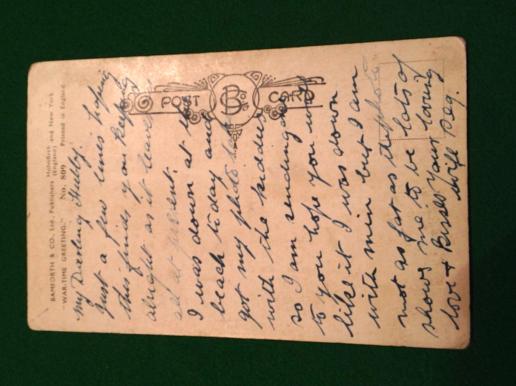 BAMFORTH & CO., Ltd., Publishers Holmfirth (England) and New York
"WAR-TIME GREETING." No. 809 Printed in England
POST CARD
My Darling Hubby
Just a few lines hoping
this finds you keeping
alright as it leaves
at present.
I was down at the
beach today and
got my photo
with the kiddies
so I am sending it
to you hope you will
like it I was down
with min but I am
not as fat as the photo
shows me to be lots of
love & Kisses Your loving
wife Peg.